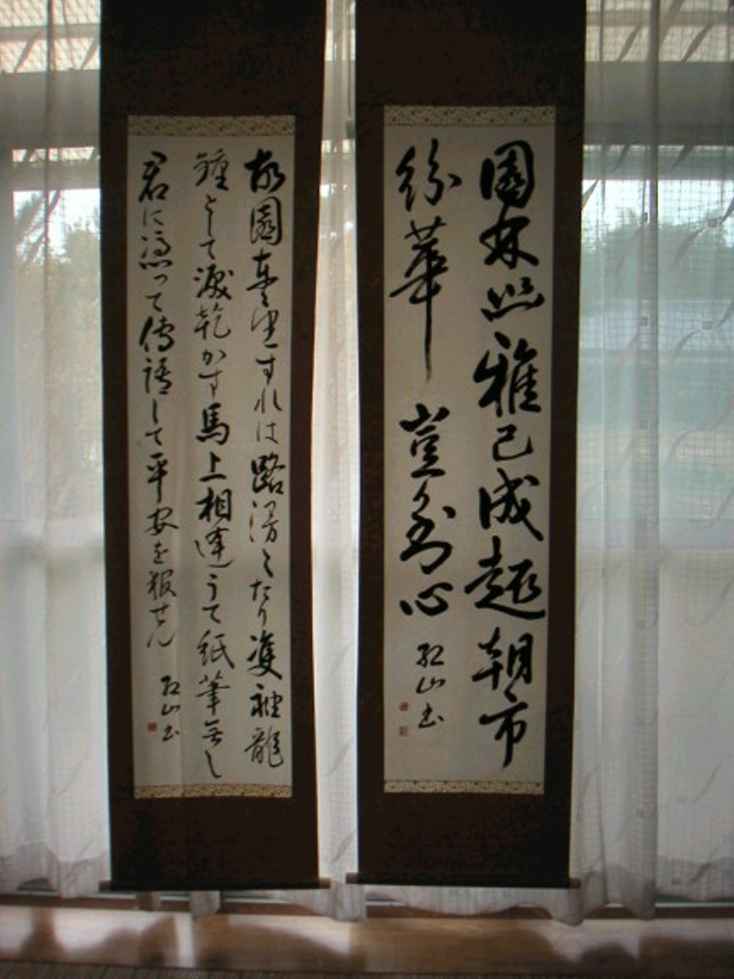 園林雅已成趣朝市
紛華豈到心
山書
故園東望すれは路漫々たり雙袖龍
鍾として涙乾かす馬上相逢うて紙筆無し
君に憑って傳語して平安を報せん 山書